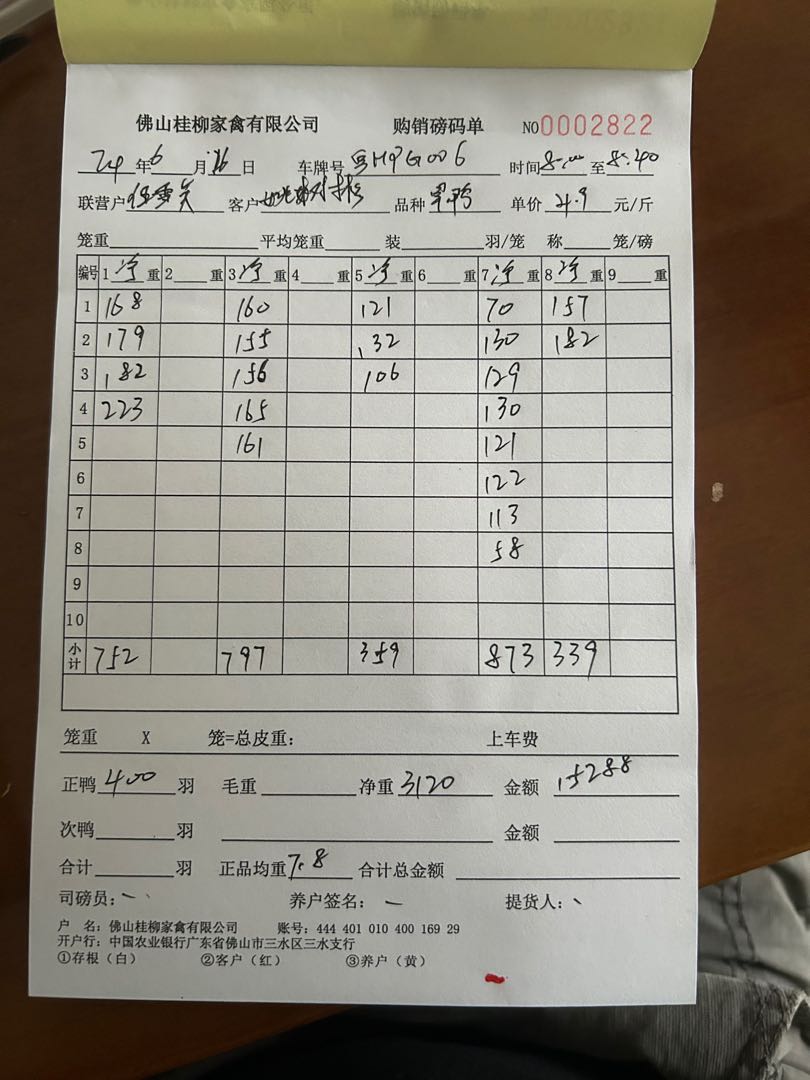 佛山桂柳家禽有限公司 购销磅码单 NO0002822
24年6月16日 车牌号 粤H9G006 时间8:00至8:40
联营户 客户 品种 单价4.9元/斤
笼重 平均笼重 装 羽/笼 称 笼/磅
编号 1净重 2重 3净重 4重 5净重 6重 7净重 8净重 9重
1 168 160 121 70 157
2 179 155 132 130 182
3 182 156 106 129
4 223 165 130
5 161 121
6 122
7 113
8 58
9
10
小计 752 797 359 873 339
笼重 X 笼=总皮重: 上车费
正鸭400羽 毛重 净重3120 金额15288
次鸭 羽 金额
合计 羽 正品均重7.8 合计总金额
司磅员: 养户签名: 提货人:
户 名: 佛山桂柳家禽有限公司 账号: 444 401 010 400 169 29
开户行: 中国农业银行广东省佛山市三水区三水支行
①存根(白) ②客户(红) ③养户(黄)